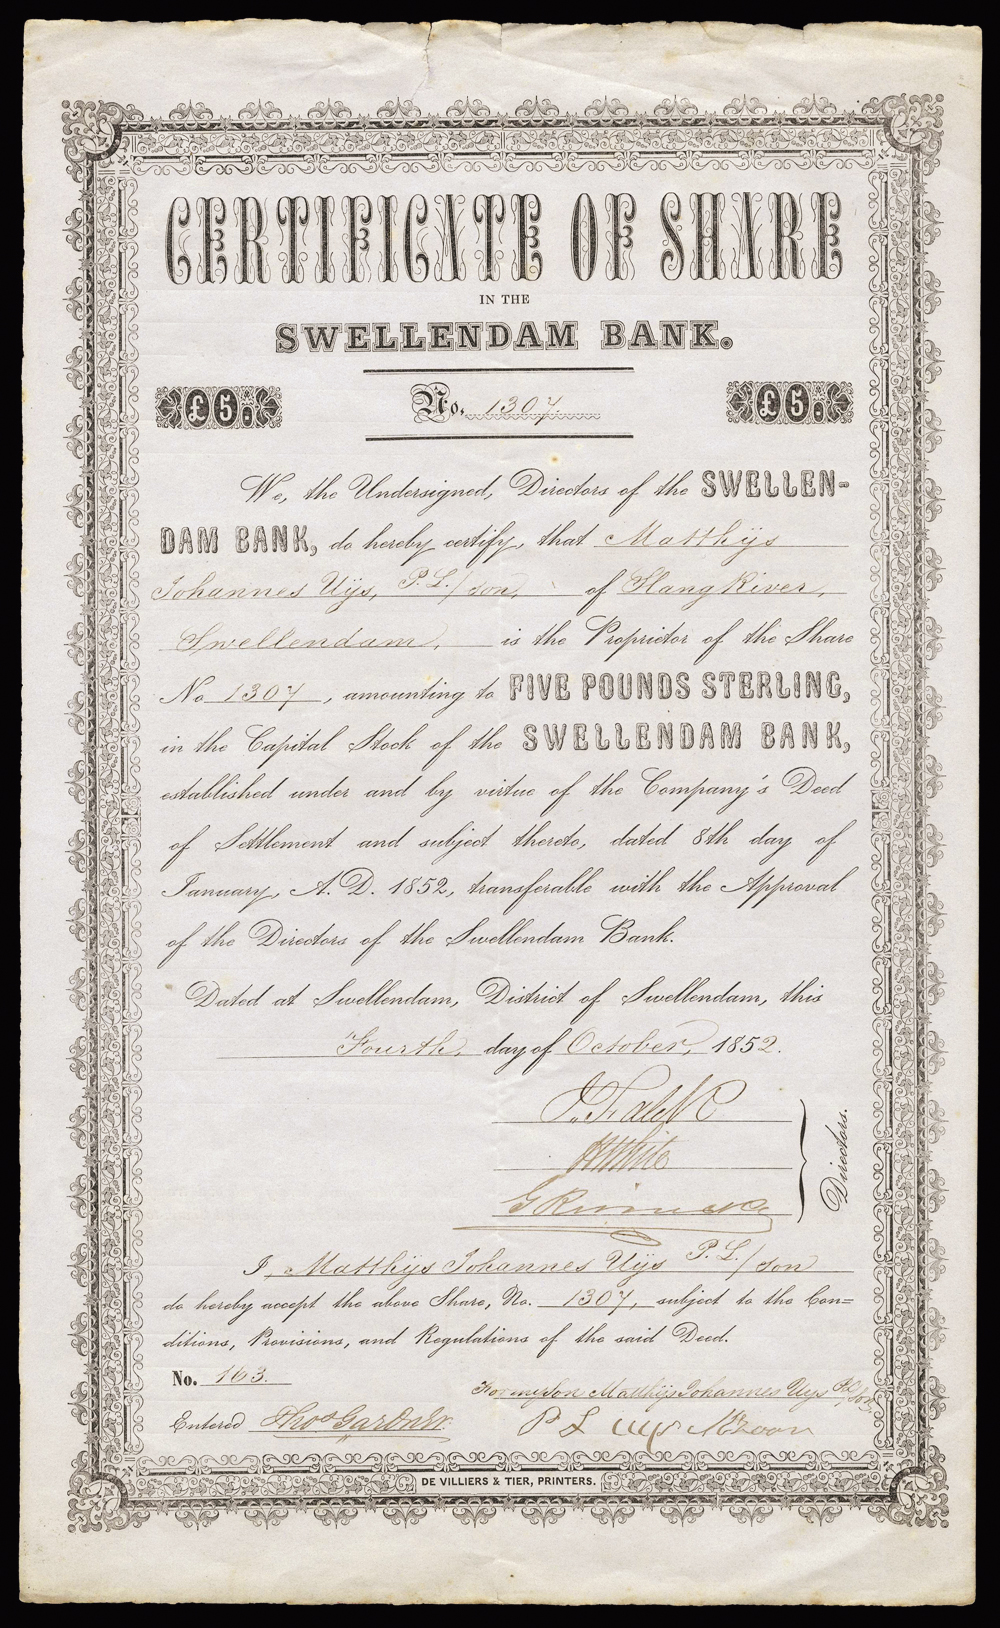 CERTIFICATE OF SHARE
IN THE
SWELLENDAM BANK.
£5. No. 1307. £5.
We, the Undersigned, Directors of the SWELLEN-
DAM BANK, do hereby certify, that Matthijs
Johannes Uijs, P. L./son, of Slang River,
Swellendam, is the Proprietor of the Share
No 1307, amounting to FIVE POUNDS STERLING,
in the Capital Stock of the SWELLENDAM BANK,
established under and by virtue of the Company's Deed
of Settlement and subject thereto, dated 8th day of
January, A. D. 1852, transferable with the Approval
of the Directors of the Swellendam Bank.
Dated at Swellendam, District of Swellendam, this
Fourth day of October, 1852.
Directors.
I, Matthijs Johannes Uijs P. L./son
do hereby accept the above Share, No. 1307, subject to the Con=
ditions, Provisions, and Regulations of the said Deed.
No. 163.
For my Son Matthijs Johannes Uys
Entered Thos Gardner
P L uys
DE VILLIERS & TIER, PRINTERS.